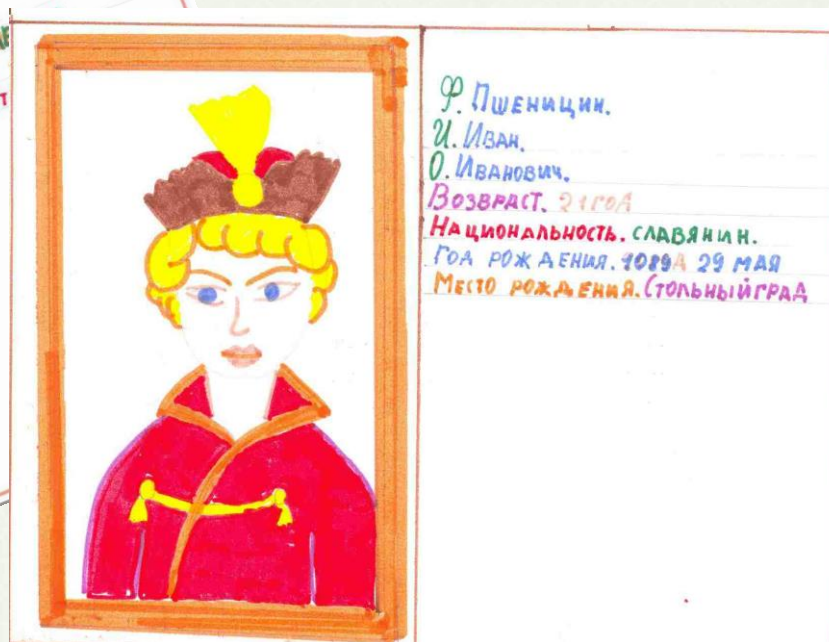 Ф. Пшеницин.
И. Иван.
О. Иванович.
Возвраст. 21 год
Национальность. славянин.
Год рождения. 1089 29 мая
Место рождения. Стольныйград